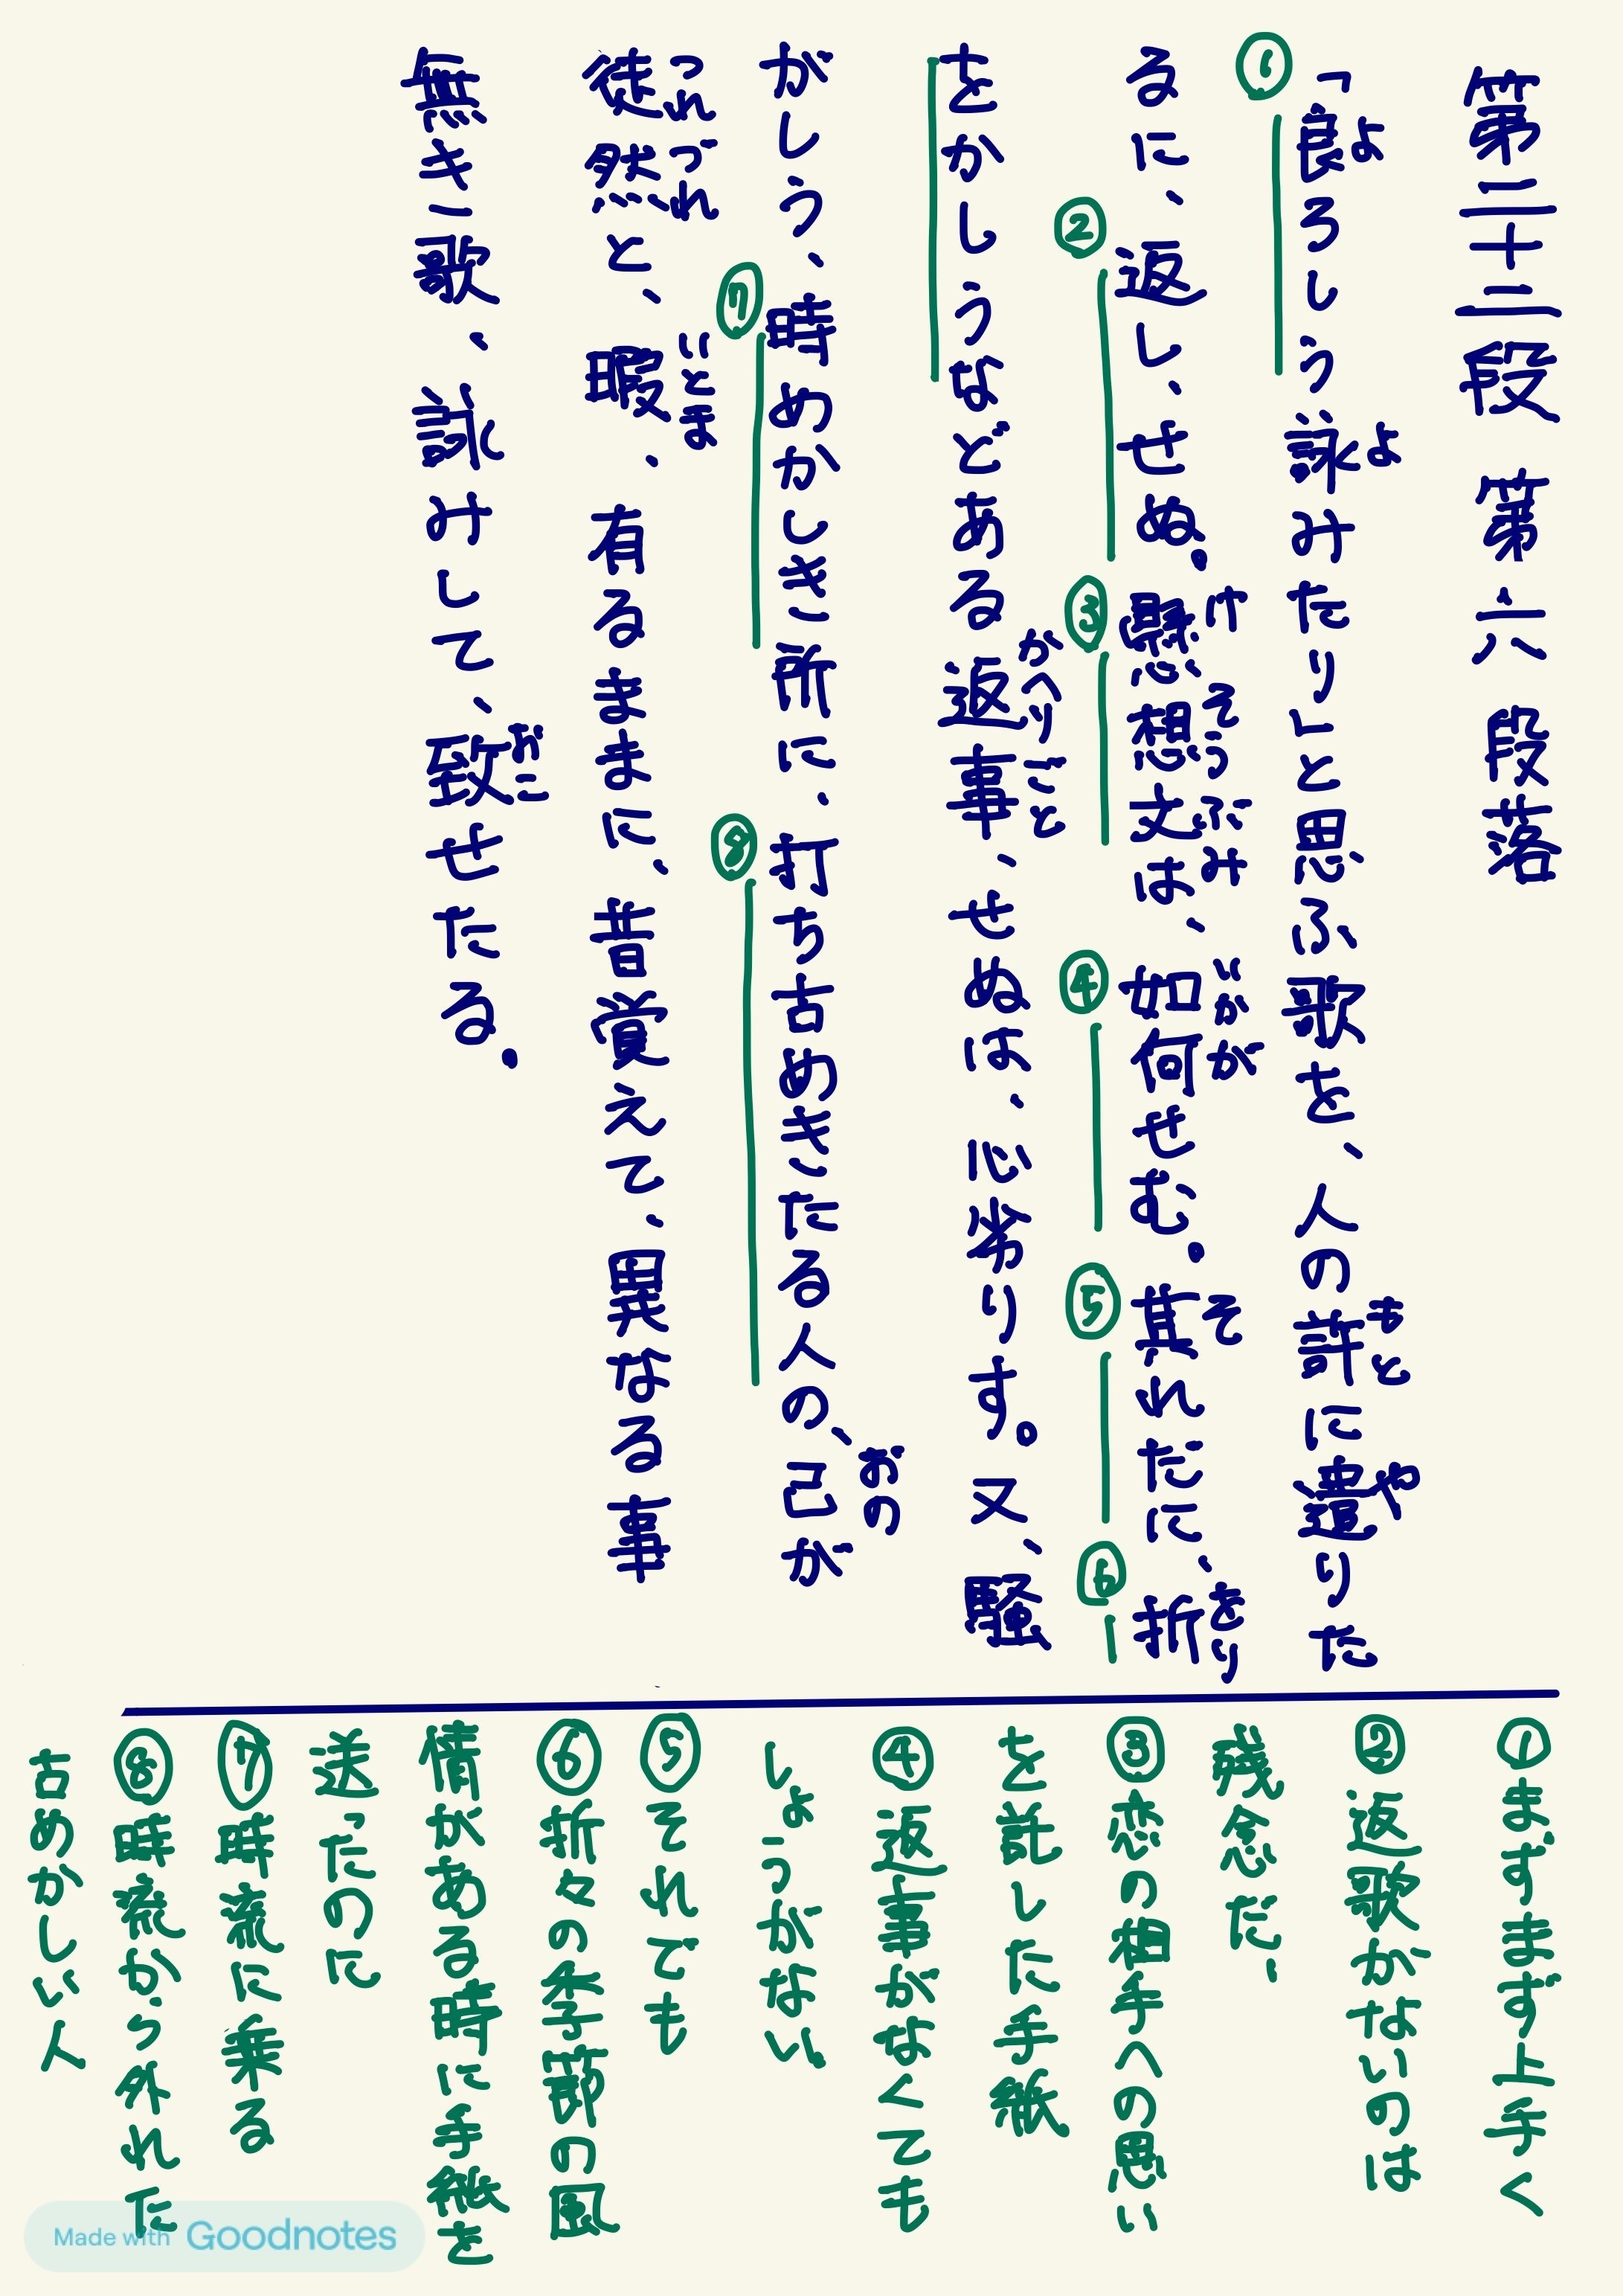 第二十二段 第六段落
①「良ろしう詠みたり」と思ふ歌を、人の許に遣りた
よ よ もと や
るに、②返し、せぬ。③懸想文は、④如何せむ。⑤其れだに、⑥折
け そう ぶみ いかが そ をり
をかしうなどある返事、せぬは、心劣りす。又、騒
かへりごと
がしう、⑦時めかしき所に、⑧打ち古めきたる人の、己が
おの
徒然と、暇、有るままに、昔覚えて、異なる事
つれづれ いとま
無き歌、詠みして、致せたる。
おこ
①まずまず上手く
②返歌がないのは
残念だ、
③恋の相手への思い
を託した手紙
④返事がなくても
しょうがない
⑤それでも
⑥折々の季節の風
情がある時に手紙を
送ったのに
⑦時流に乗る
⑧時流から外れた
古めかしい人
Made with Goodnotes